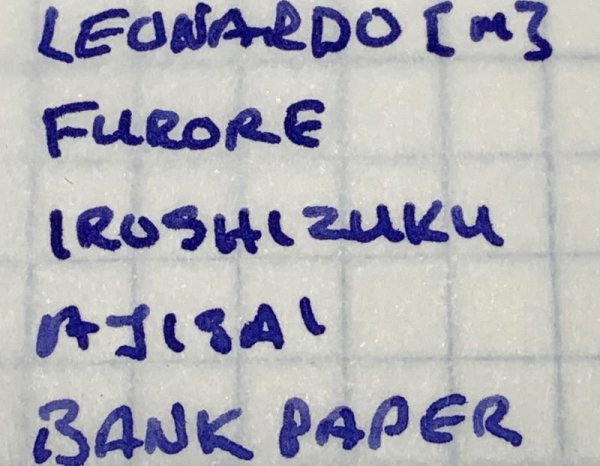 LEONARDO [M]
FURORE
IROSHIZUKU
AJISAI
BANK PAPER